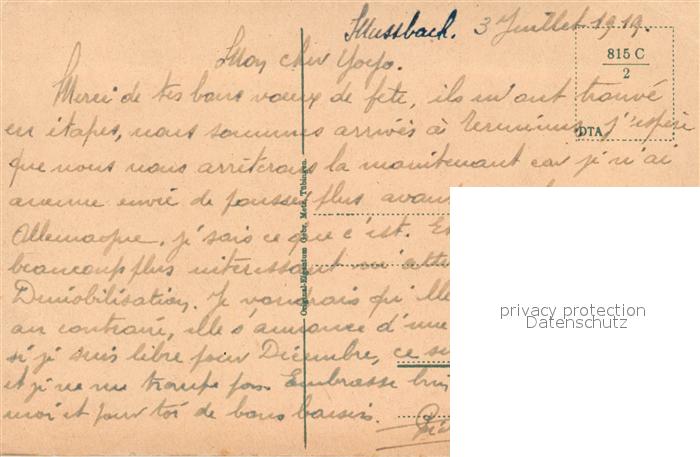 Mussbach. 3 Juillet 1919.
Mon cher Yoyo.
815 C
2
DTA
Merci de tes bons voeux de fête, ils m'ont trouvé
en étapes, nous sommes arrivés à Terminus, j'espère
que nous nous arrêterons là maintenant car je n'ai
aucune envie de pousser plus avant
Allemagne, je sais ce que c'est.
beaucoup plus intéressant
Démobilisation. Je voudrais qu'elle
au contraire, elle s'annonce d'une
si je suis libre pour Décembre, ce
et je ne me trompe pas. Embrasse bien
moi et pour toi de bons baisers.
Original-Eigentum Gebr. Metz, Tübingen.
privacy protection
Datenschutz